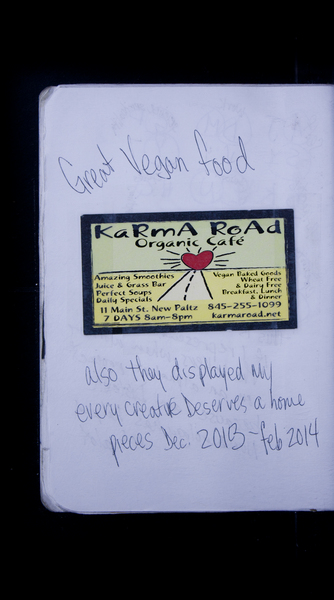 Great Vegan food
KaRmA RoAd
Organic Café
Amazing Smoothies
Juice & Grass Bar
Perfect Soups
Daily Specials
Vegan Baked Goods
Wheat Free
& Dairy Free
Breakfast, Lunch
& Dinner
11 Main St. New Paltz 845-255-1099
7 DAYS 8am-8pm karmaroad.net
also they displayed my
every creative Deserves a home
pieces Dec. 2013 - feb 2014